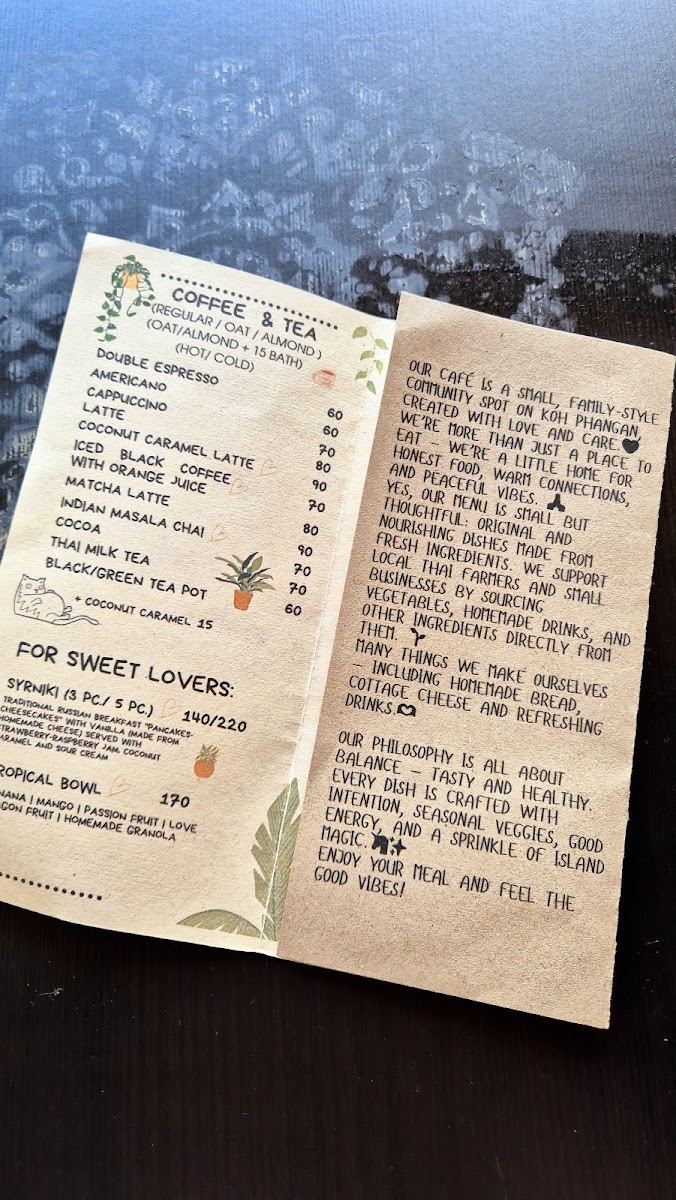 COFFEE & TEA
(REGULAR / OAT / ALMOND )
(OAT/ALMOND + 15 BATH)
(HOT/ COLD)
DOUBLE ESPRESSO 60
AMERICANO 60
CAPPUCCINO 70
LATTE 80
COCONUT CARAMEL LATTE 90
ICED BLACK COFFEE
WITH ORANGE JUICE 70
MATCHA LATTE 80
INDIAN MASALA CHAI 90
COCOA 70
THAI MILK TEA 70
BLACK/GREEN TEA POT 60
+ COCONUT CARAMEL 15
FOR SWEET LOVERS:
SYRNIKI (3 PC./ 5 PC.) 140/220
TRADITIONAL RUSSIAN BREAKFAST "PANCAKES-
CHEESECAKES" WITH VANILLA (MADE FROM
HOMEMADE CHEESE) SERVED WITH
TRAWBERRY-RASPBERRY JAM, COCONUT
ARAMEL AND SOUR CREAM
ROPICAL BOWL 170
NANA | MANGO | PASSION FRUIT | LOVE
AGON FRUIT | HOMEMADE GRANOLA
OUR CAFÉ IS A SMALL, FAMILY-STYLE
COMMUNITY SPOT ON KOH PHANGAN,
CREATED WITH LOVE AND CARE.🖤
WE'RE MORE THAN JUST A PLACE TO
EAT – WE'RE A LITTLE HOME FOR
HONEST FOOD, WARM CONNECTIONS,
AND PEACEFUL VIBES. 🙏
YES, OUR MENU IS SMALL BUT
THOUGHTFUL: ORIGINAL AND
NOURISHING DISHES MADE FROM
FRESH INGREDIENTS. WE SUPPORT
LOCAL THAI FARMERS AND SMALL
BUSINESSES BY SOURCING
VEGETABLES, HOMEMADE DRINKS, AND
OTHER INGREDIENTS DIRECTLY FROM
THEM. 🌱
MANY THINGS WE MAKE OURSELVES
– INCLUDING HOMEMADE BREAD,
COTTAGE CHEESE AND REFRESHING
DRINKS.
OUR PHILOSOPHY IS ALL ABOUT
BALANCE – TASTY AND HEALTHY.
EVERY DISH IS CRAFTED WITH
INTENTION, SEASONAL VEGGIES, GOOD
ENERGY, AND A SPRINKLE OF ISLAND
MAGIC.
ENJOY YOUR MEAL AND FEEL THE
GOOD VIBES!